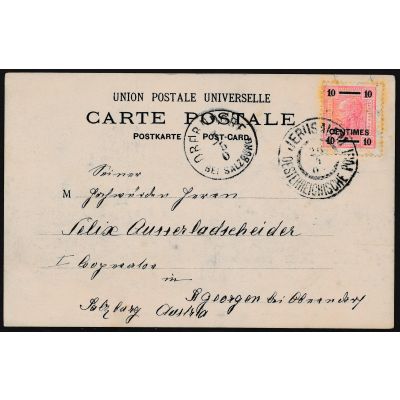 UNION POSTALE UNIVERSELLE
CARTE POSTALE
POSTKARTE POST-CARD.
10 10
CENTIMES
10 10
JERUSALEM
OESTERREICHISCHE POST
BEI SALZBURG
Seiner
M Hochwürden Herrn
Felix Ausserladscheider
I Cooperator
in
St Georgen bei Oberndorf
Salzburg Austria